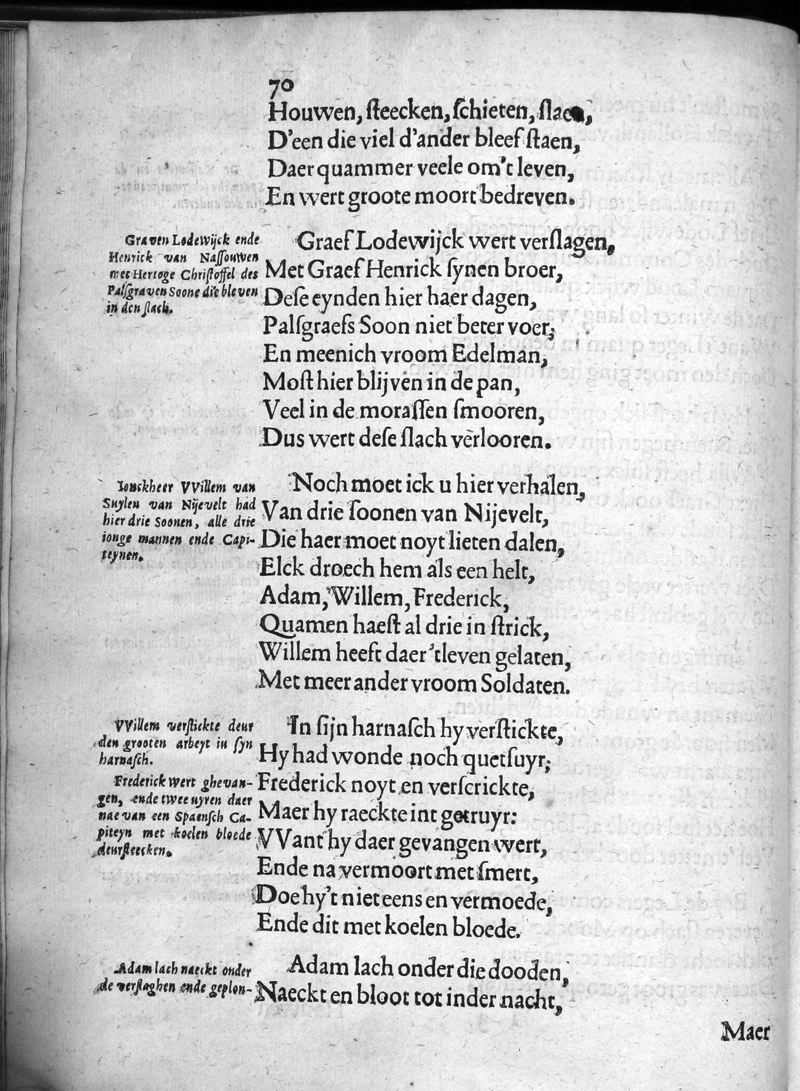 70
Houwen, ſteecken, ſchieten, ſlaen,
D'een die viel d'ander bleef ſtaen,
Daer quammer veele om't leven,
En wert groote moort bedreven.
Graven Lodewijck ende
Henrick van Naſſouwen
met Hertoge Chriſtoffel des
Palſgraven Soone die bleven
in den ſlach.
Graef Lodewijck wert verſlagen,
Met Graef Henrick ſynen broer,
Deſe eynden hier haer dagen,
Palſgraefs Soon niet beter voer,
En meenich vroom Edelman,
Moſt hier blijven in de pan,
Veel in de moraſſen ſmooren,
Dus wert deſe ſlach verlooren.
Ionckheer VVillem van
Suylen van Nijevelt had
hier drie Soonen, alle drie
ionge mannen ende Capi-
teynen.
Noch moet ick u hier verhalen,
Van drie ſoonen van Nijevelt,
Die haer moet noyt lieten dalen,
Elck droech hem als een helt,
Adam, Willem, Frederick,
Quamen haeſt al drie in ſtrick,
Willem heeft daer 'tleven gelaten,
Met meer ander vroom Soldaten.
VVillem verſtickte deur
den grooten arbeyt in ſyn
harnaſch.
Frederick wert ghevan-
gen, ende twee uyren daer
nae van een Spaenſch Ca-
piteyn met koelen bloede
deurſteecken.
In ſijn harnaſch hy verſtickte,
Hy had wonde noch quetſuyr,
Frederick noyt en verſcrickte,
Maer hy raeckte int getruyr:
VVant hy daer gevangen wert,
Ende na vermoort met ſmert,
Doe hy't niet eens en vermoede,
Ende dit met koelen bloede.
Adam lach naeckt onder
de verſlaghen ende geplon-
Adam lach onder die dooden,
Naeckt en bloot tot inder nacht,
Maer